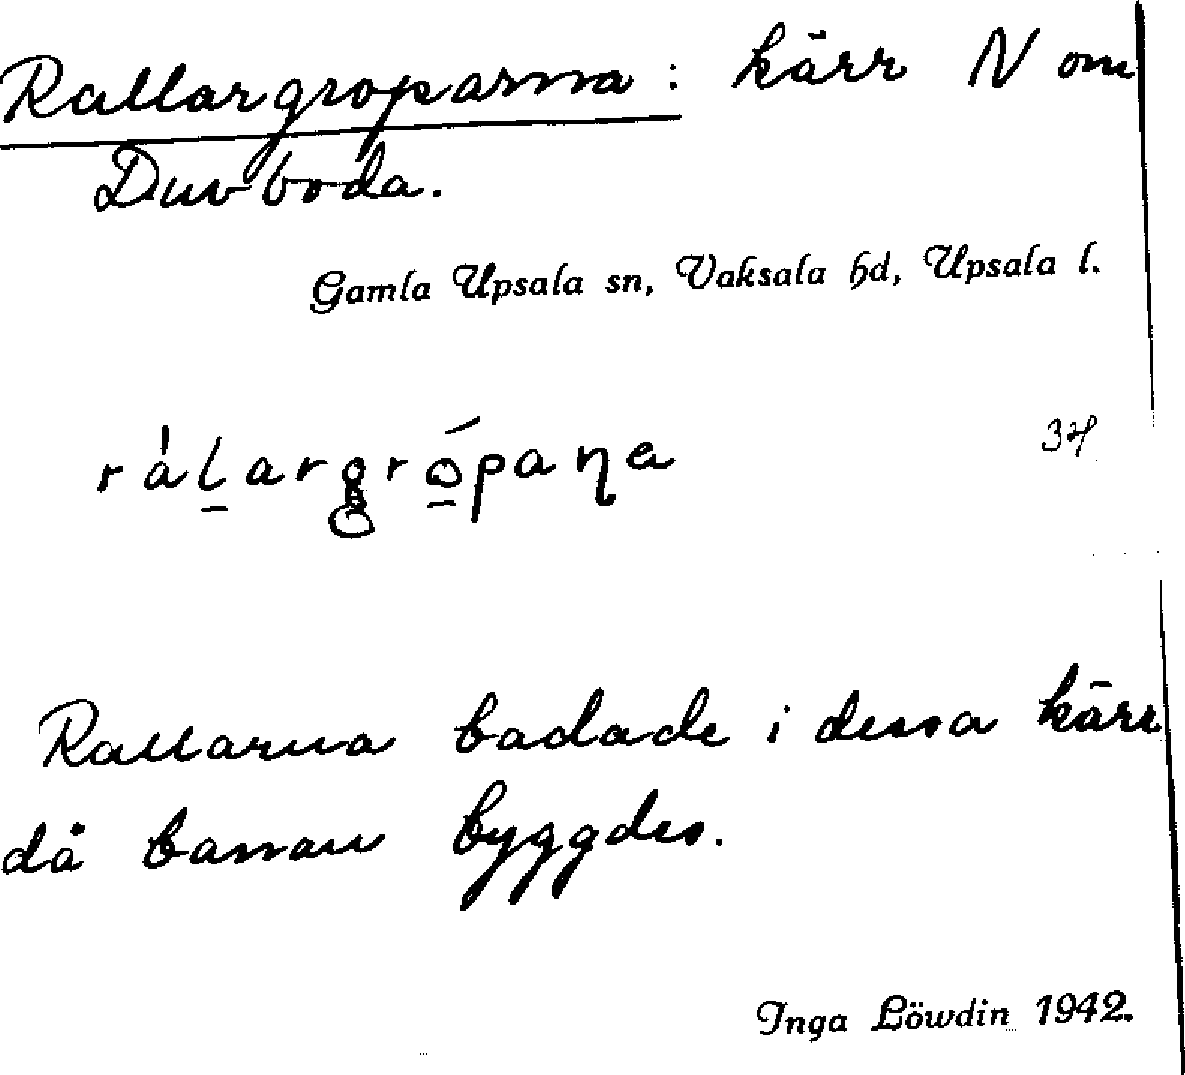 Rallargroparna: kärr N om
Duvboda.
Gamla Upsala sn, Vaksala hd, Upsala l.
Rallarna badade i dessa kärr
då banan byggdes.
Inga Löwdin 1942.